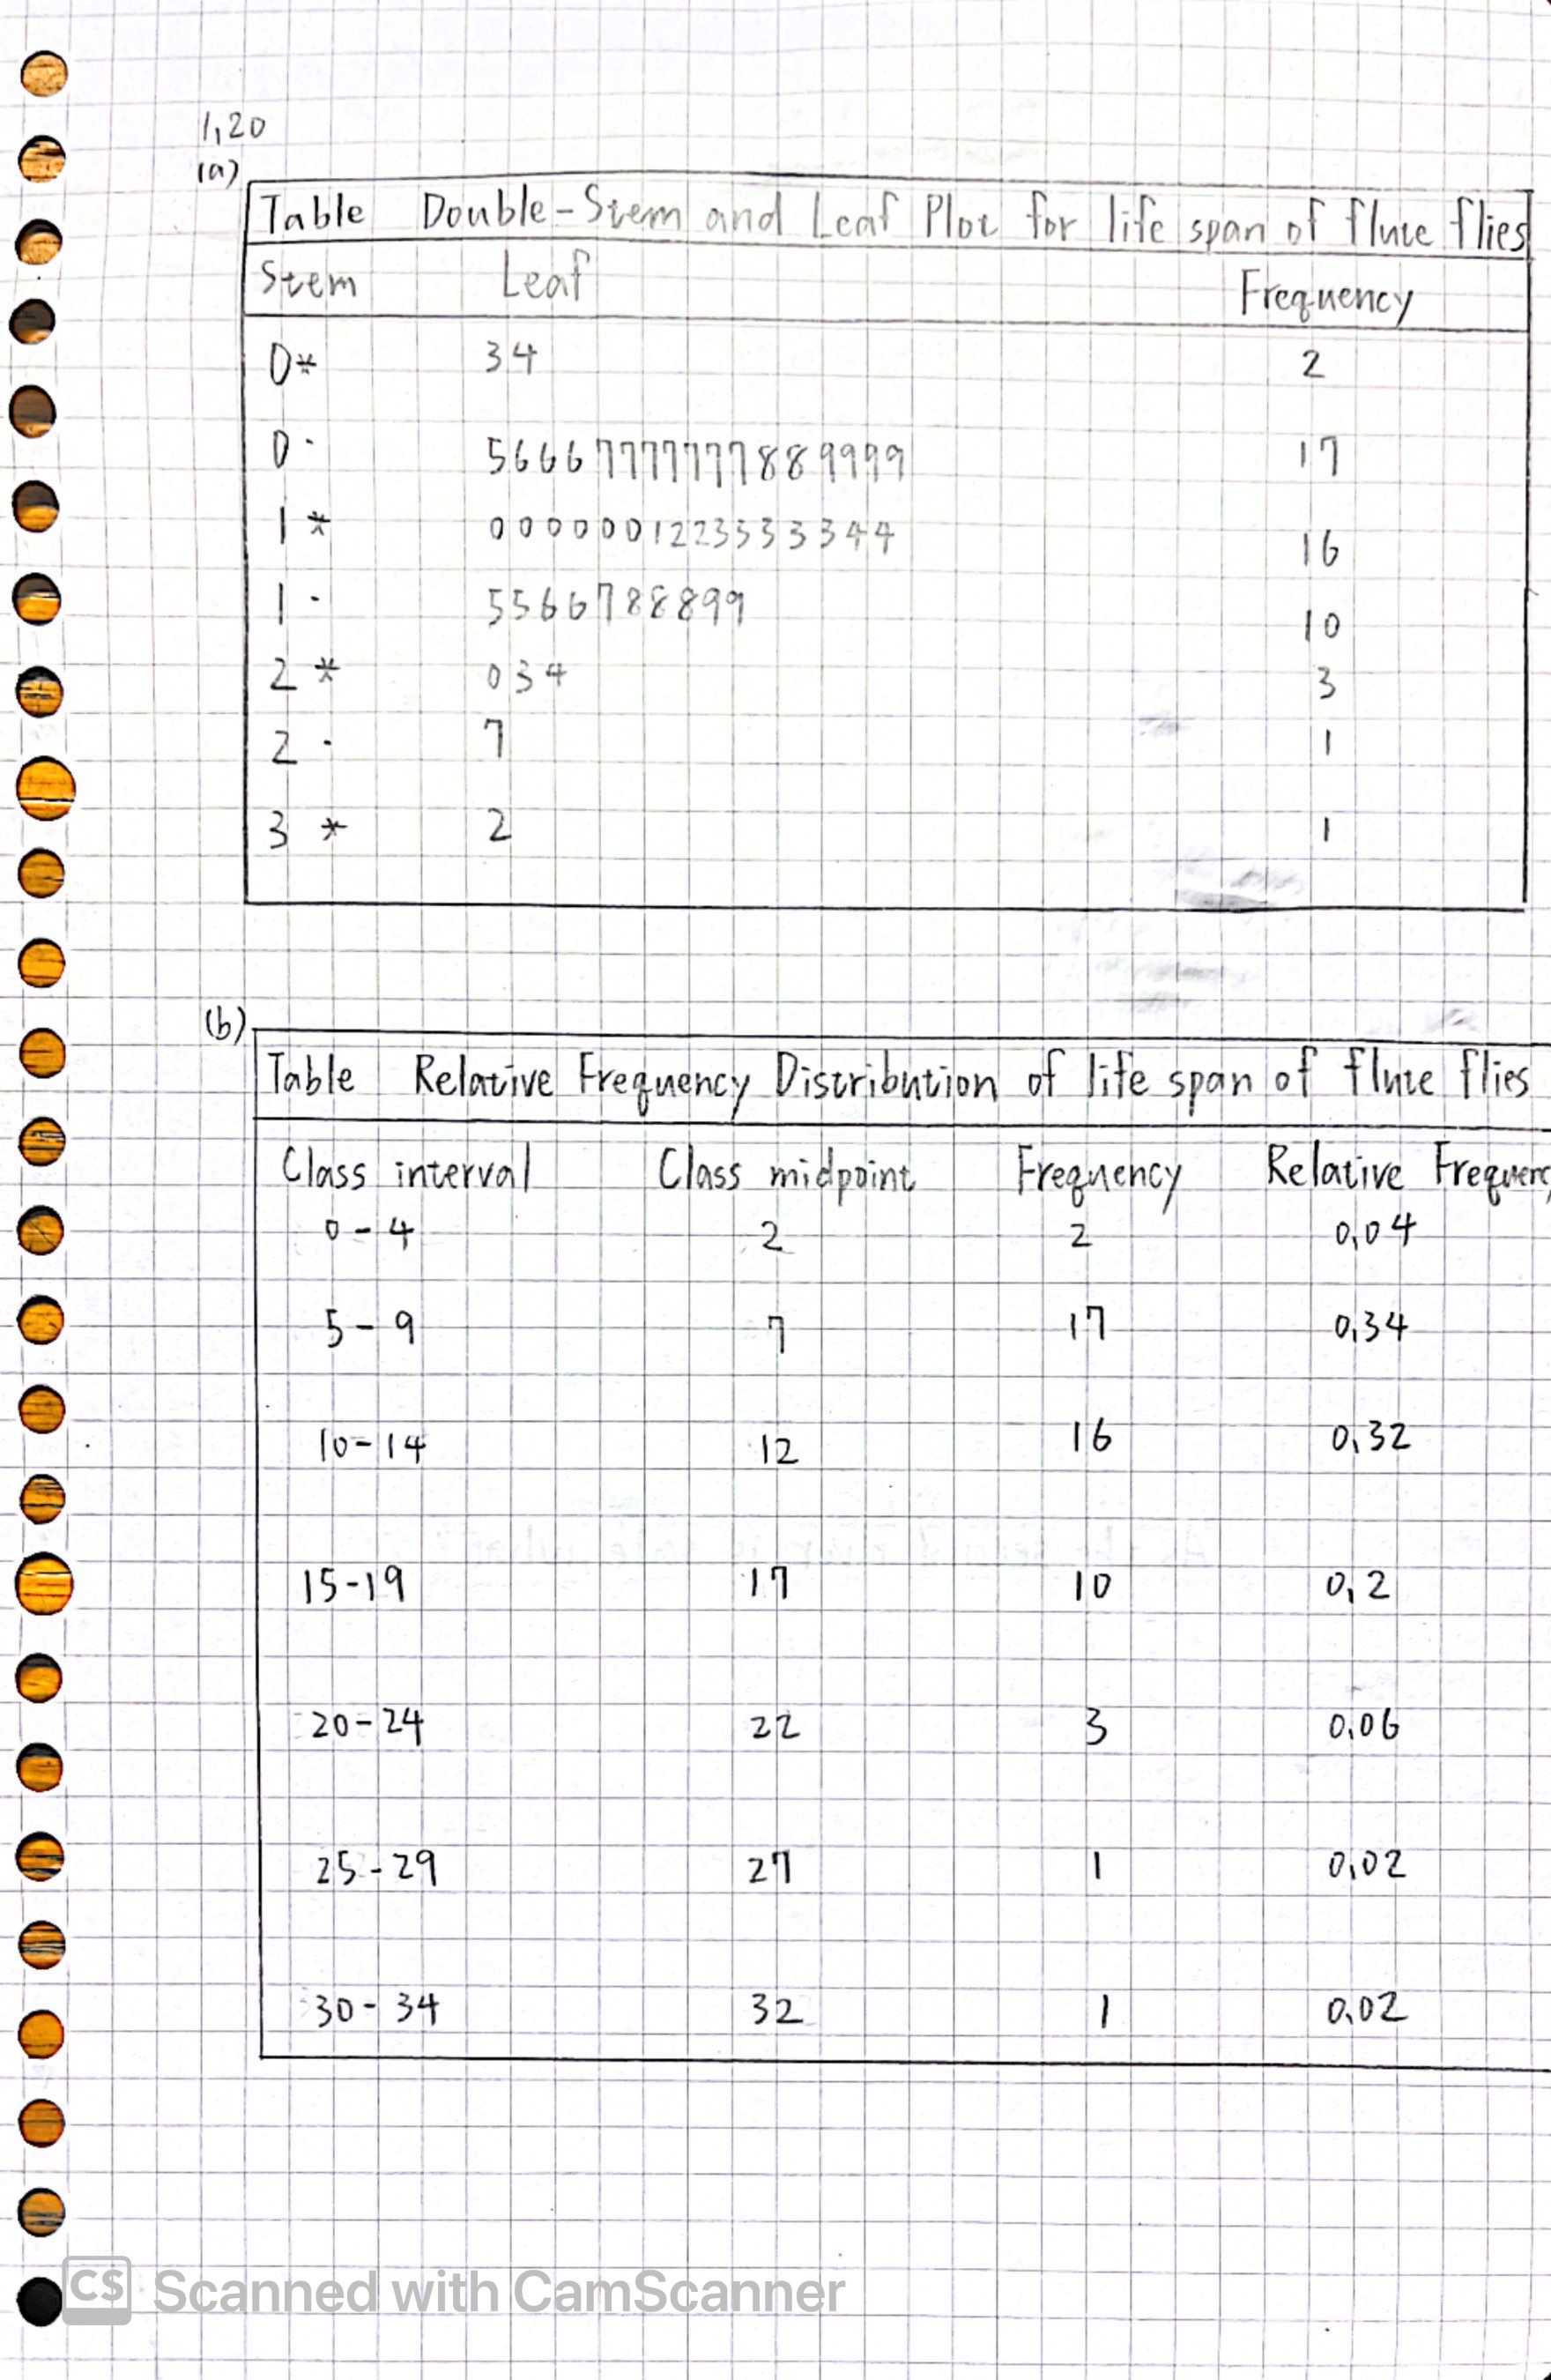 1.20
(a)
Table Double-Stem and Leaf Plot for life span of flute flies
Stem Leaf Frequency
0* 34 2
0· 56667777777889999 17
1* 0000001223333344 16
1· 5566788899 10
2* 034 3
2· 7 1
3* 2 1
(b)
Table Relative Frequency Distribution of life span of flute flies
Class interval Class midpoint Frequency Relative Frequenc
0-4 2 2 0.04
5-9 7 17 0.34
10-14 12 16 0.32
15-19 17 10 0.2
20-24 22 3 0.06
25-29 27 1 0.02
30-34 32 1 0.02
CS Scanned with CamScanner